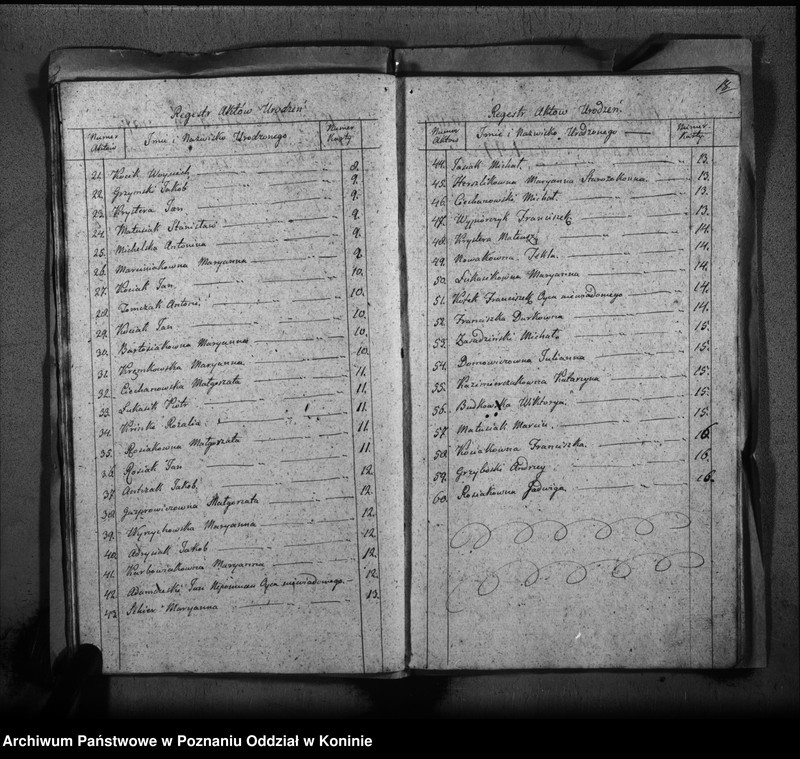 Regestr Aktów Urodzeń
Numer Aktów Imie i Nazwisko Urodzonego Numer Karty
21. Kocik Woyciech 8.
22. Grzymski Jakób 9.
23. Krystera Jan 9.
24. Matusiak Stanisław 9.
25. Michelska Antonina 9.
26. Marciniakowna Maryanna 9.
27. Kosiak Jan 10.
28. Tomczak Antoni 10.
29. Kosiak Jan 10.
30. Bartosiakowna Maryanna 10.
31. Maryanna 10.
32. Ciechanowska Małgorzata 11.
33. Łukasik Piotr 11.
34. Rozalia 11.
35. Rosiakowna Małgorzata 11.
36. Rosiak Jan 11.
37. Antczak Jakób 12.
38. Małgorzata 12.
39. Wyrychowska Maryanna 12.
40. Adrysiak Jakób 12.
41. Kurbowiakowna Maryanna 12.
42. Adamczeski Jan Nepomucen Oyca niewiadomego. 12.
43. Maryanna 13.
12
Regestr Aktów Urodzeń.
Numer Aktów Imie i Nazwisko Urodzonego Numer Karty.
44. Michał 13.
45. Herszlikowna Maryanna Starozakonna. 13.
46. Ciechanowski Michał. 13.
47. Franciszek 13.
48. Krystera Mateusz 14.
49. Nowakowna Tekla. 14.
50. Łukasikowna Maryanna 14.
51. Franciszek Oyca niewiadomego 14.
52. Franciszka Durkowna 14.
53. Zasadziński Michał 15.
54. Domowiczowna Julianna 15.
55. Kazimierczakowna Katarzyna 15.
56. Budkowska Wiktorya. 15.
57. Matusiak Marcin. 15.
58. Kosiakowna Franciszka. 16.
59. Grzyboski Andrzey 16.
60. Rosiakowna Jadwiga. 16.
Archiwum Państwowe w Poznaniu Oddział w Koninie